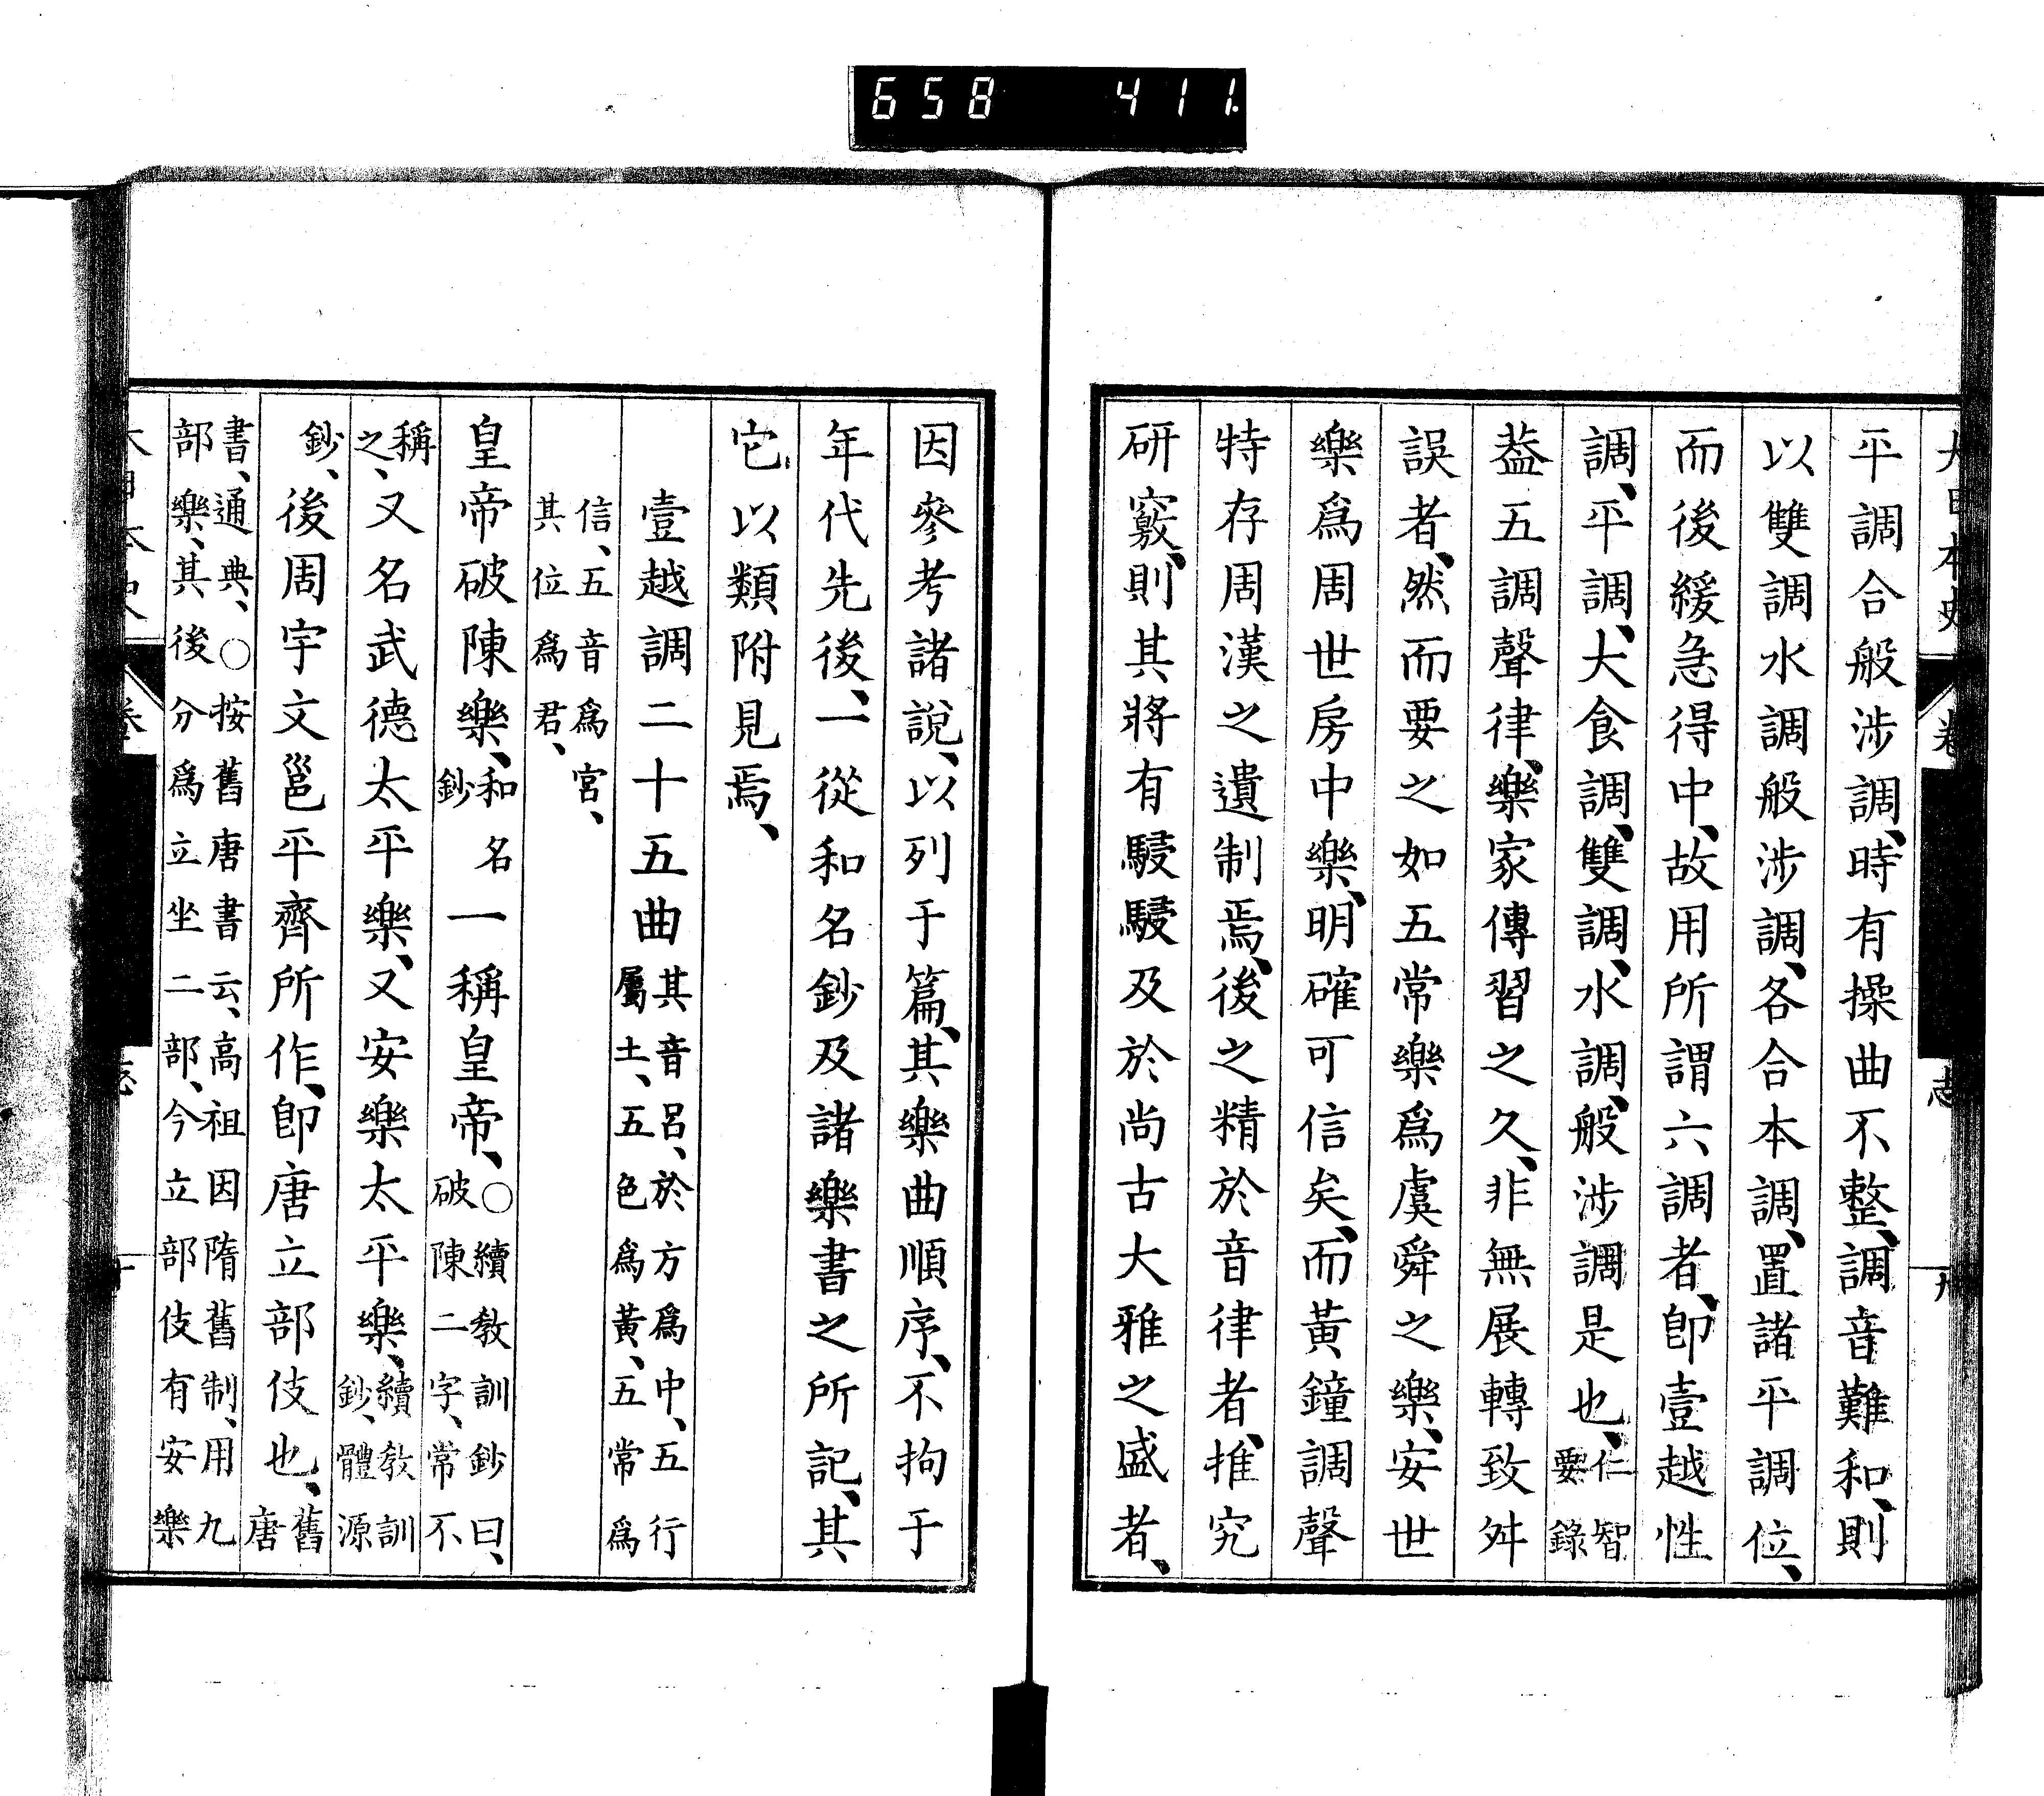 658 411
大日本史 卷 志 九
平調合般涉調、時有操曲不整、調音難和、則
以雙調水調般涉調、各合本調、置諸平調位、
而後緩急得中、故用所謂六調者、卽壹越性
調、平調、大食調、雙調、水調、般涉調是也、仁智要錄
葢五調聲律、樂家傳習之久、非無展轉致舛
誤者、然而要之如五常樂爲虞舜之樂、安世
樂爲周世房中樂、明確可信矣、而黃鐘調聲
特存周漢之遺制焉、後之精於音律者、推究
研竅、則其將有駸駸及於尚古大雅之盛者、
因參考諸說、以列于篇、其樂曲順序、不拘于
年代先後、一從和名鈔及諸樂書之所記、其
它以類附見焉、
壹越調二十五曲其音呂、於方爲中、五行屬土、五色爲黃、五常爲
信、五音爲宮、其位爲君、
皇帝破陳樂、和名鈔一稱皇帝、○續敎訓鈔曰、破陳二字、常不
稱之、又名武德太平樂、又安樂太平樂、續敎訓鈔、體源
鈔、後周宇文邕平齊所作、卽唐立部伎也、舊唐
書、通典、○按舊唐書云、高祖因隋舊制、用九部樂、其後分爲立坐二部、今立部伎有安樂